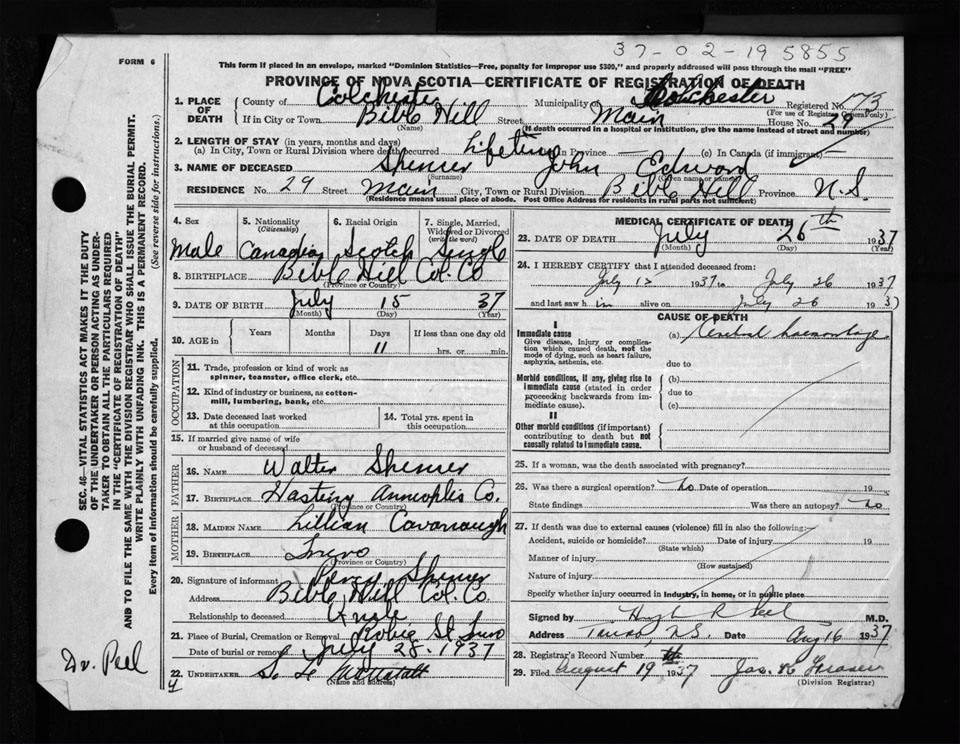 37-02-195855
FORM 6
This form if placed in an envelope, marked "Dominion Statistics—Free, penalty for improper use $300," and properly addressed will pass through the mail "FREE"
PROVINCE OF NOVA SCOTIA—CERTIFICATE OF REGISTRATION OF DEATH
1. PLACE OF DEATH
County of Colchester Municipality of Colchester Registered No. 173
(For use of Registrar General only)
If in City or Town Bible Hill Street Main House No. 29
(Name) (If death occurred in a hospital or institution, give the name instead of street and number)
2. LENGTH OF STAY (in years, months and days)
(a) In City, Town or Rural Division where death occurred Lifetime In Province — (c) In Canada (if immigrant)
3. NAME OF DECEASED Spencer John Edward
(Surname) (Given name or names)
RESIDENCE No. 29 Street Main City, Town or Rural Division Bible Hill Province N.S.
(Residence means usual place of abode. Post Office Address for residents in rural parts not sufficient)
4. Sex 5. Nationality (Citizenship) 6. Racial Origin 7. Single, Married, Widowed or Divorced (write the word)
Male Canadian Scotch Single
8. BIRTHPLACE Bible Hill Col. Co
(Province or Country)
9. DATE OF BIRTH July 15 37
(Month) (Day) (Year)
10. AGE in Years Months Days If less than one day old
11 hrs. or min.
OCCUPATION
11. Trade, profession or kind of work as spinner, teamster, office clerk, etc.
12. Kind of industry or business, as cotton-mill, lumbering, bank, etc.
13. Date deceased last worked at this occupation
14. Total yrs. spent in this occupation
15. If married give name of wife or husband of deceased
FATHER
16. NAME Walter Spencer
17. BIRTHPLACE Hasting Annapolis Co.
(Province or Country)
MOTHER
18. MAIDEN NAME Lillian Cavanaugh
19. BIRTHPLACE Truro
(Province or Country)
20. Signature of informant Percy Spencer
Address Bible Hill Col. Co.
Relationship to deceased Uncle
21. Place of Burial, Cremation or Removal Robie St Truro
Date of burial or removal July 28. 1937
22. UNDERTAKER
(Name and address)
MEDICAL CERTIFICATE OF DEATH
23. DATE OF DEATH July 26th 1937
(Month) (Day) (Year)
24. I HEREBY CERTIFY that I attended deceased from:
July 15 1937 to July 26 1937
and last saw h im alive on July 26 1937
CAUSE OF DEATH
I
Immediate cause
Give disease, injury or complication which caused death, not the mode of dying, such as heart failure, asphyxia, asthenia, etc.
(a) Cerebral haemorrhage
due to
Morbid conditions, if any, giving rise to immediate cause (stated in order proceeding backwards from immediate cause).
(b)
due to
(c)
II
Other morbid conditions (if important) contributing to death but not causally related to immediate cause.
25. If a woman, was the death associated with pregnancy?
26. Was there a surgical operation? no Date of operation 19
State findings Was there an autopsy? no
27. If death was due to external causes (violence) fill in also the following:
Accident, suicide or homicide? Date of injury 19
(State which)
Manner of injury
(How sustained)
Nature of injury
Specify whether injury occurred in Industry, in home, or in public place
Signed by Hugh R Peel M.D.
Address Truro N.S. Date Aug 16 1937
28. Registrar's Record Number
29. Filed August 19 1937 Jas. K Fraser
(Division Registrar)
SEC. 46—VITAL STATISTICS ACT MAKES IT THE DUTY
OF THE UNDERTAKER OR PERSON ACTING AS UNDER-
TAKER TO OBTAIN ALL THE PARTICULARS REQUIRED
IN THE "CERTIFICATE OF REGISTRATION OF DEATH"
AND TO FILE THE SAME WITH THE DIVISION REGISTRAR WHO SHALL ISSUE THE BURIAL PERMIT.
WRITE PLAINLY WITH UNFADING INK. THIS IS A PERMANENT RECORD.
Every item of information should be carefully supplied. (See reverse side for instructions.)
Dr. Peel